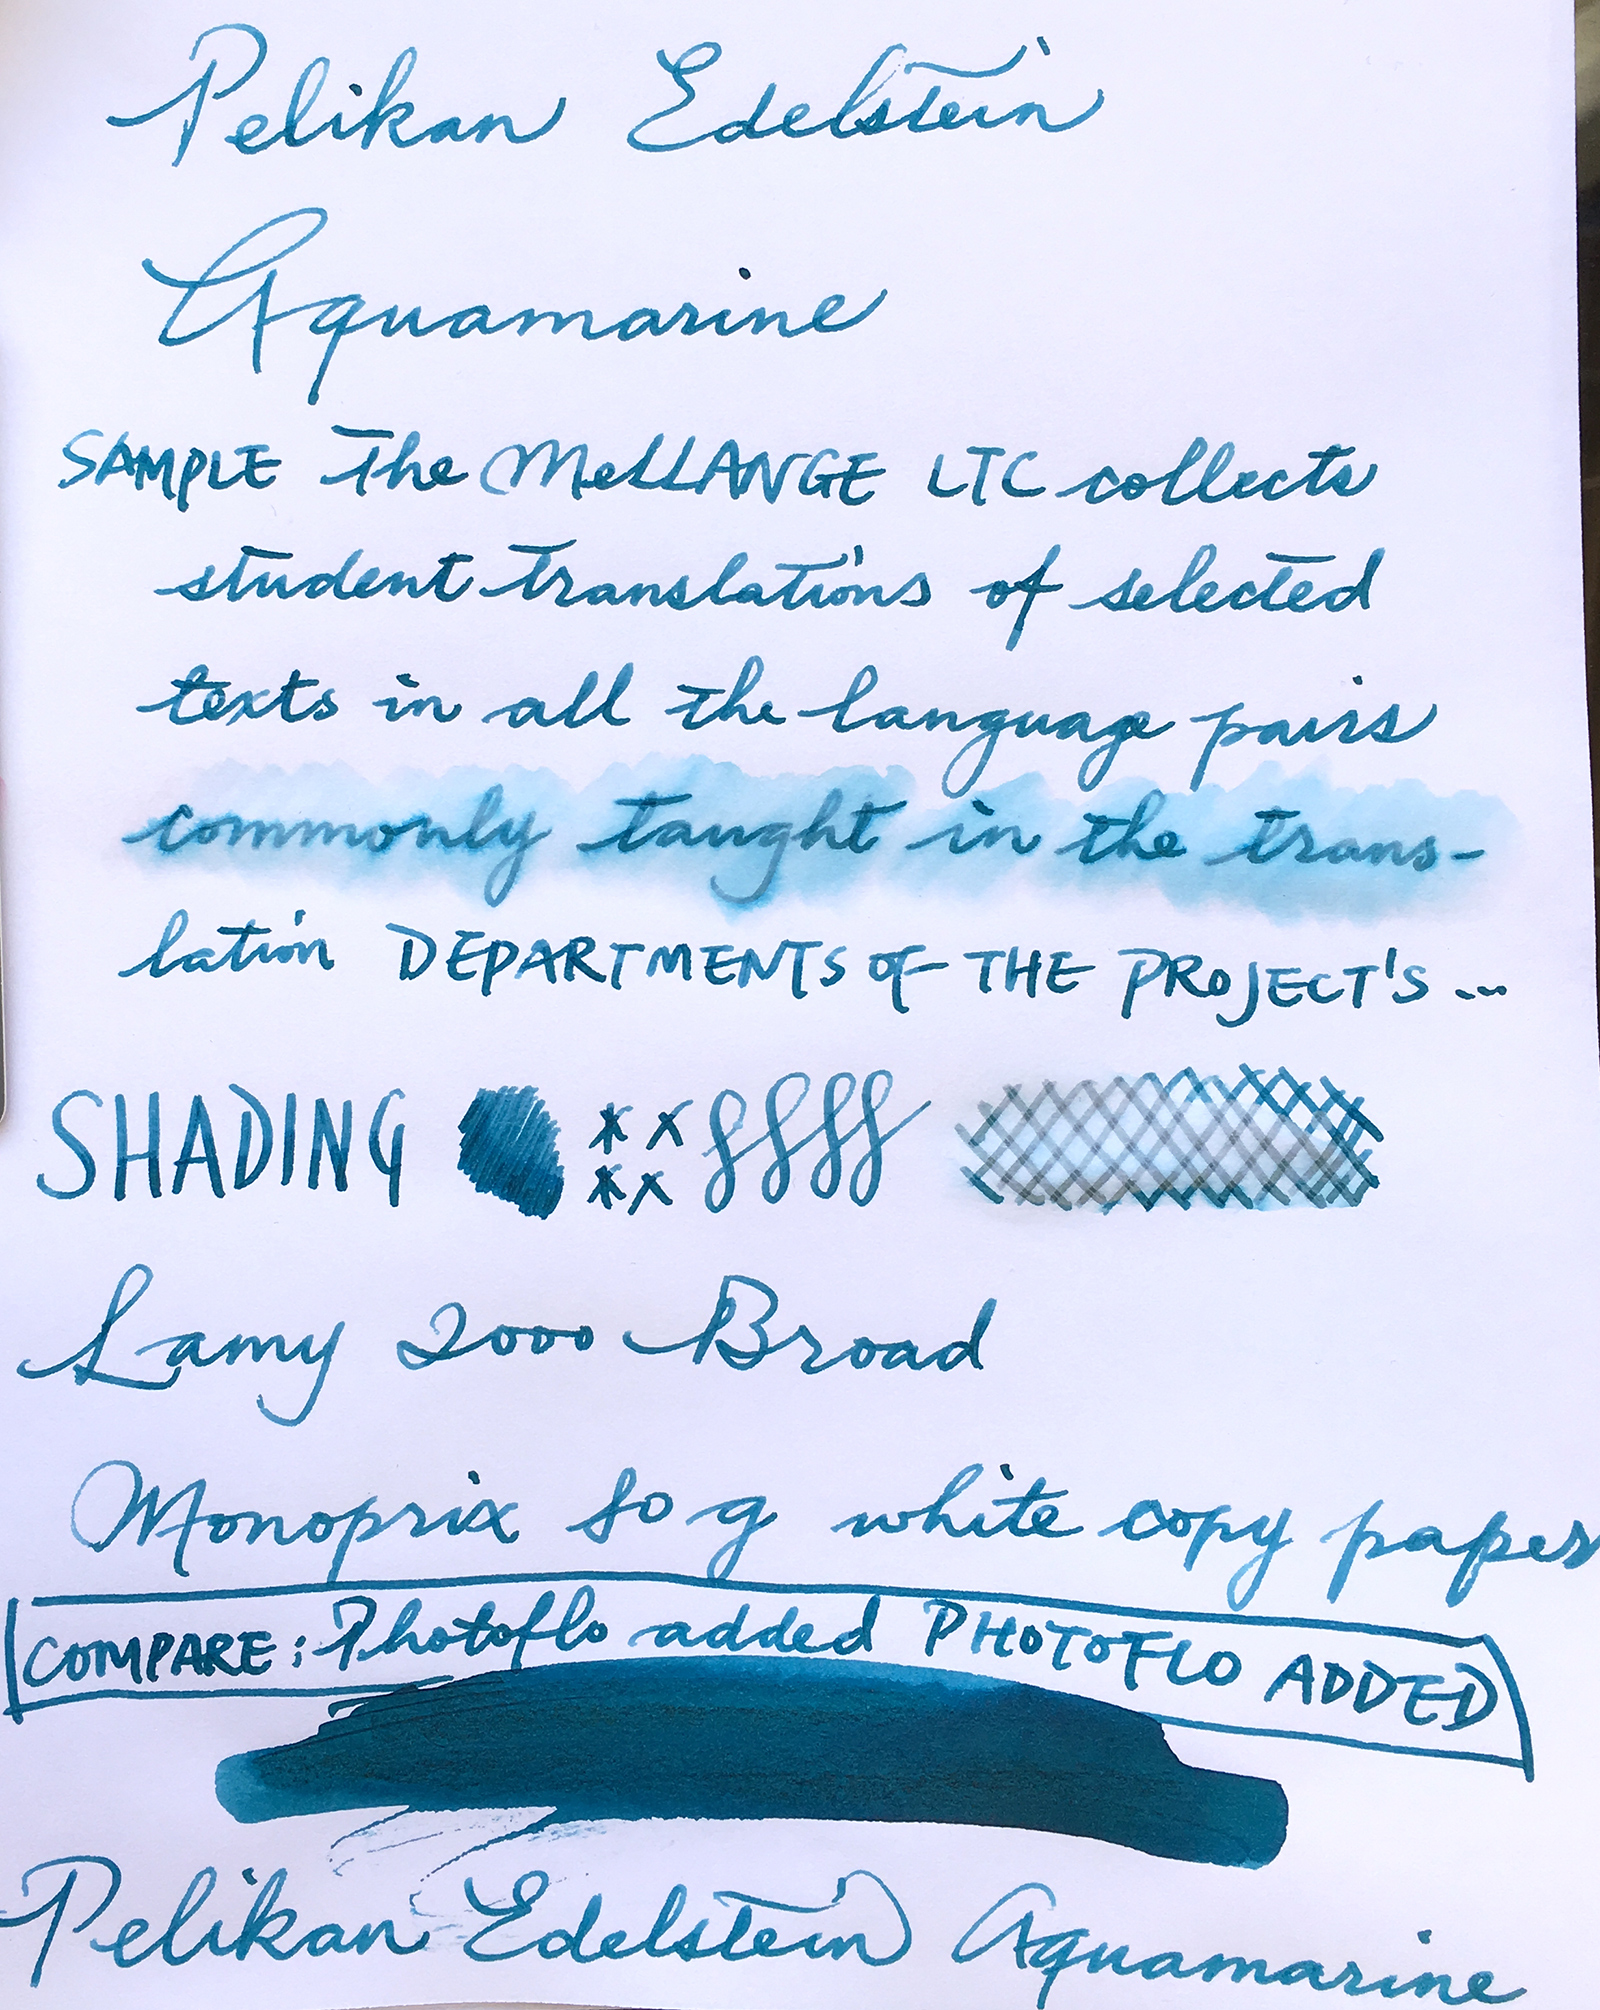 Pelikan Edelstein
Aquamarine
SAMPLE The MeLLANGE LTC collects
student translations of selected
texts in all the language pairs
commonly taught in the trans-
lation DEPARTMENTS OF THE PROJECT'S ...
SHADING
Lamy 2000 Broad
Monoprix 80 g white copy paper
COMPARE: Photoflo added PHOTOFLO ADDED
Pelikan Edelstein Aquamarine